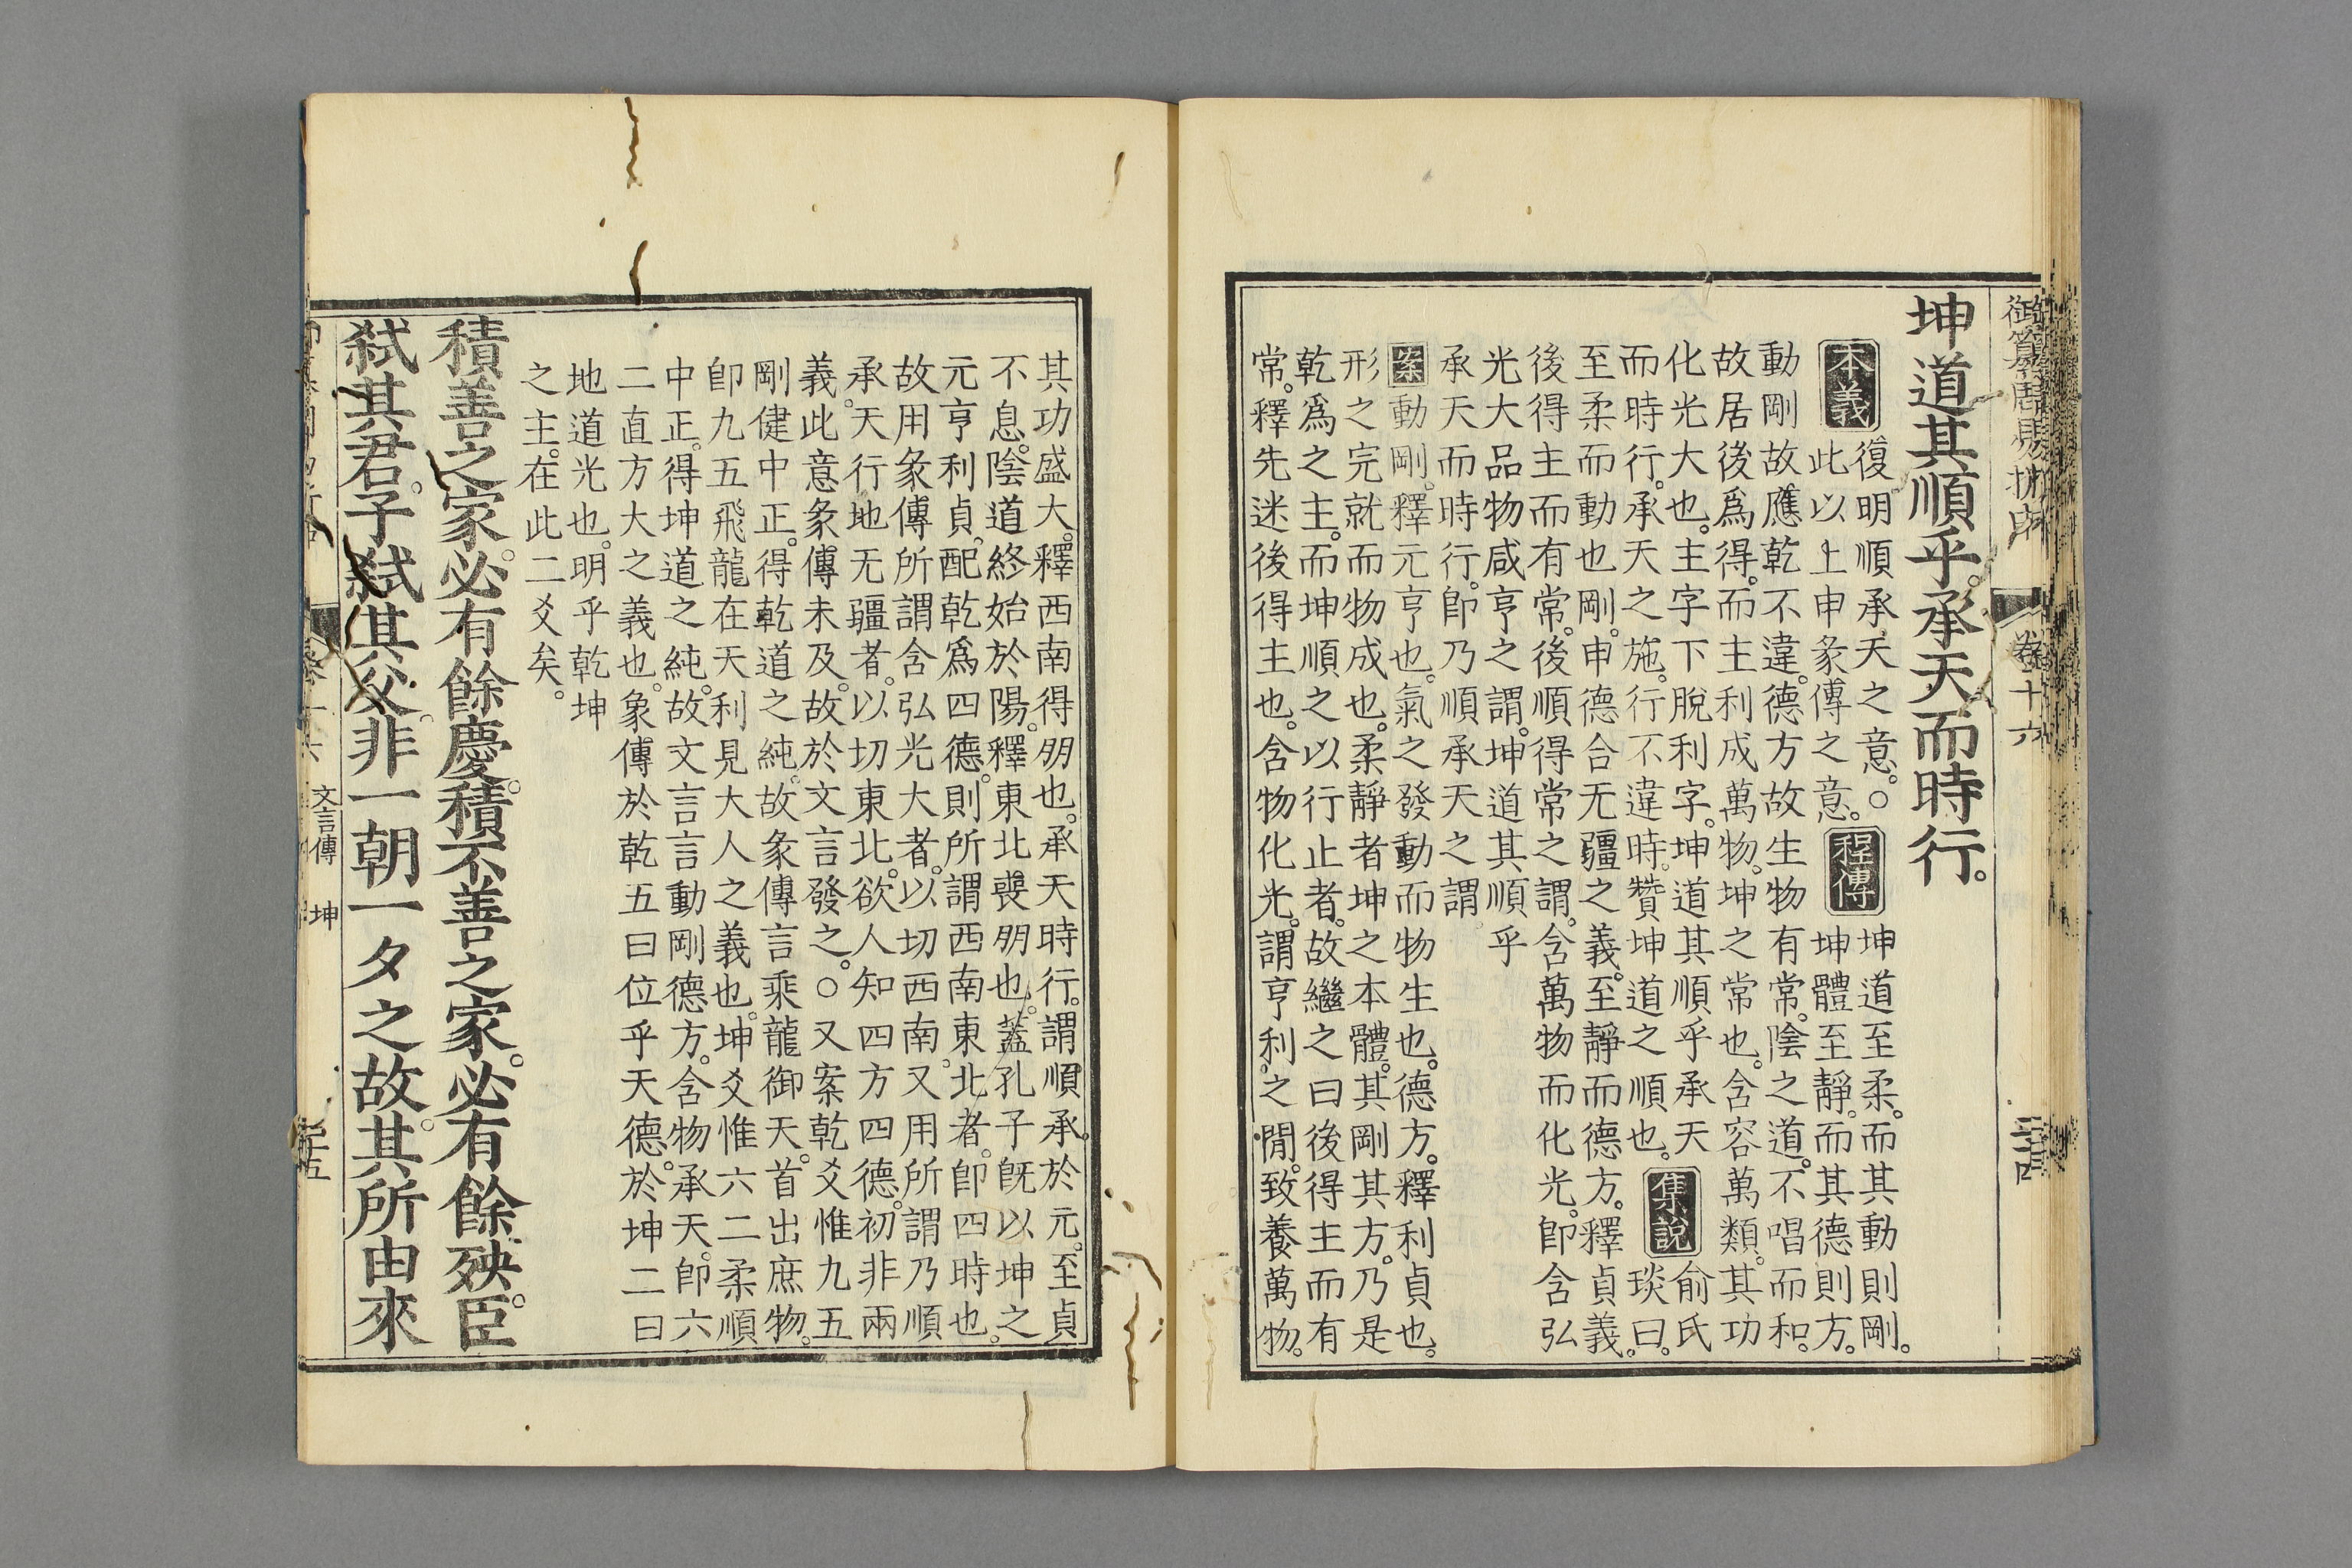 御纂周易折中 卷十六 三十四
坤道其順乎。承天而時行。
本義
復明順承天之意。○
此以上申彖傳之意。
程傳
坤道至柔。而其動則剛。
坤體至靜。而其德則方。
動剛故應乾不違。德方故生物有常。陰之道。不唱而和。
故居後爲得。而主利成萬物。坤之常也。含容萬類。其功
化光大也。主字下脫利字。坤道其順乎承天
而時行。承天之施。行不違時。贊坤道之順也。
集說
俞氏
琰曰。
至柔而動也剛。申德合无疆之義。至靜而德方。釋貞義。
後得主而有常。後順得常之謂。含萬物而化光。卽含弘
光大品物咸亨之謂。坤道其順乎
承天而時行。卽乃順承天之謂。
案動剛。釋元亨也。氣之發動而物生也。德方。釋利貞也。
形之完就而物成也。柔靜者坤之本體。其剛其方。乃是
乾爲之主。而坤順之以行止者。故繼之曰後得主而有
常。釋先迷後得主也。含物化光。謂亨利之閒。致養萬物。
其功盛大。釋西南得朋也。承天時行。謂順承於元。至貞
不息。陰道終始於陽。釋東北喪朋也。蓋孔子旣以坤之
元亨利貞。配乾爲四德。則所謂西南東北者。卽四時也。
故用彖傳所謂含弘光大者。以切西南。又用所謂乃順
承天行地无疆者。以切東北。欲人知四方四德。初非兩
義。此意彖傳未及。故於文言發之。○又案乾爻惟九五
剛健中正。得乾道之純。故彖傳言乘龍御天。首出庶物。
卽九五飛龍在天利見大人之義也。坤爻惟六二柔順
中正。得坤道之純。故文言言動剛德方。含物承天。卽六
二直方大之義也。象傳於乾五曰位乎天德。於坤二曰
地道光也。明乎乾坤
之主。在此二爻矣。
積善之家。必有餘慶。積不善之家。必有餘殃。臣
弒其君。子弒其父。非一朝一夕之故。其所由來
文言傳 坤